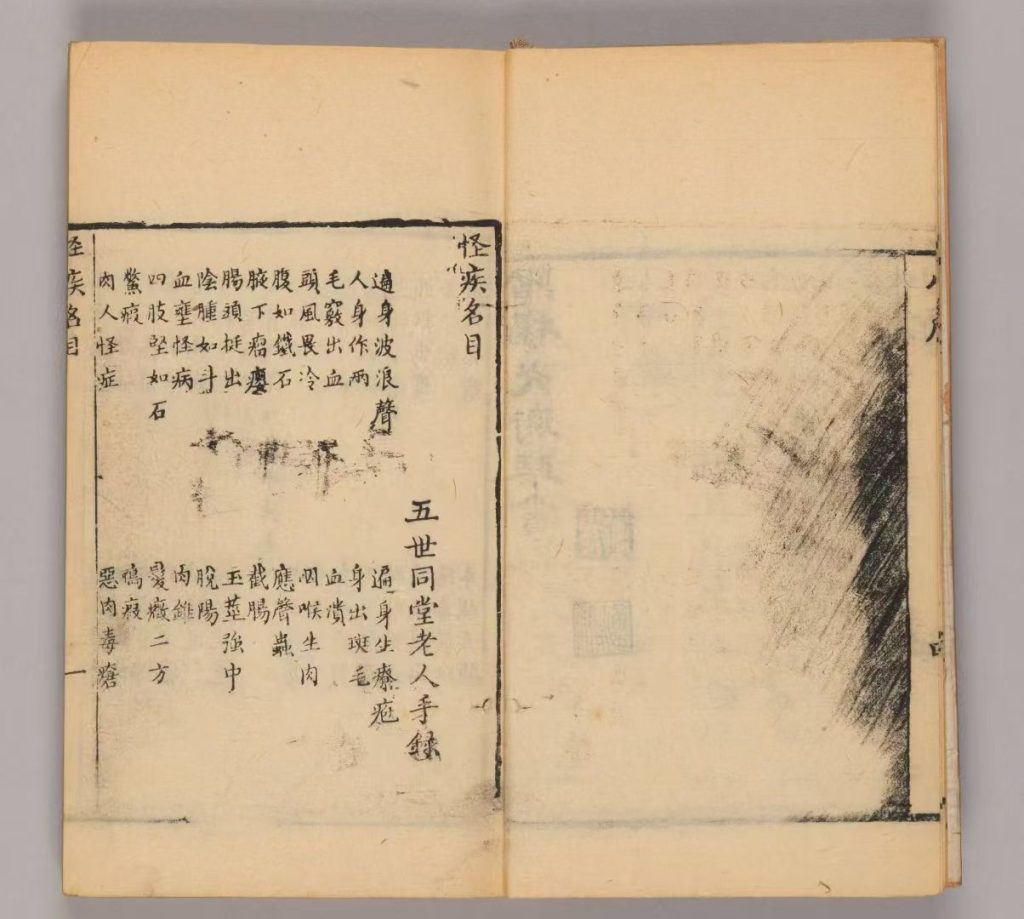 怪疾名目
五世同堂老人手録
遍身波浪聲　遍身生
人身作兩　身出斑毛
毛竅出血　血潰
頭風畏冷　咽喉生肉
腹如鐵石　應聲蟲
腋下瘤癭　截腸
腸頭挺出　玉莖強中
陰腫如斗　脫陽
血壅怪病　肉錐
四肢堅如石　髮癥二方
鱉瘕　瘕
肉人怪症　惡肉毒瘡
怪疾名目　一